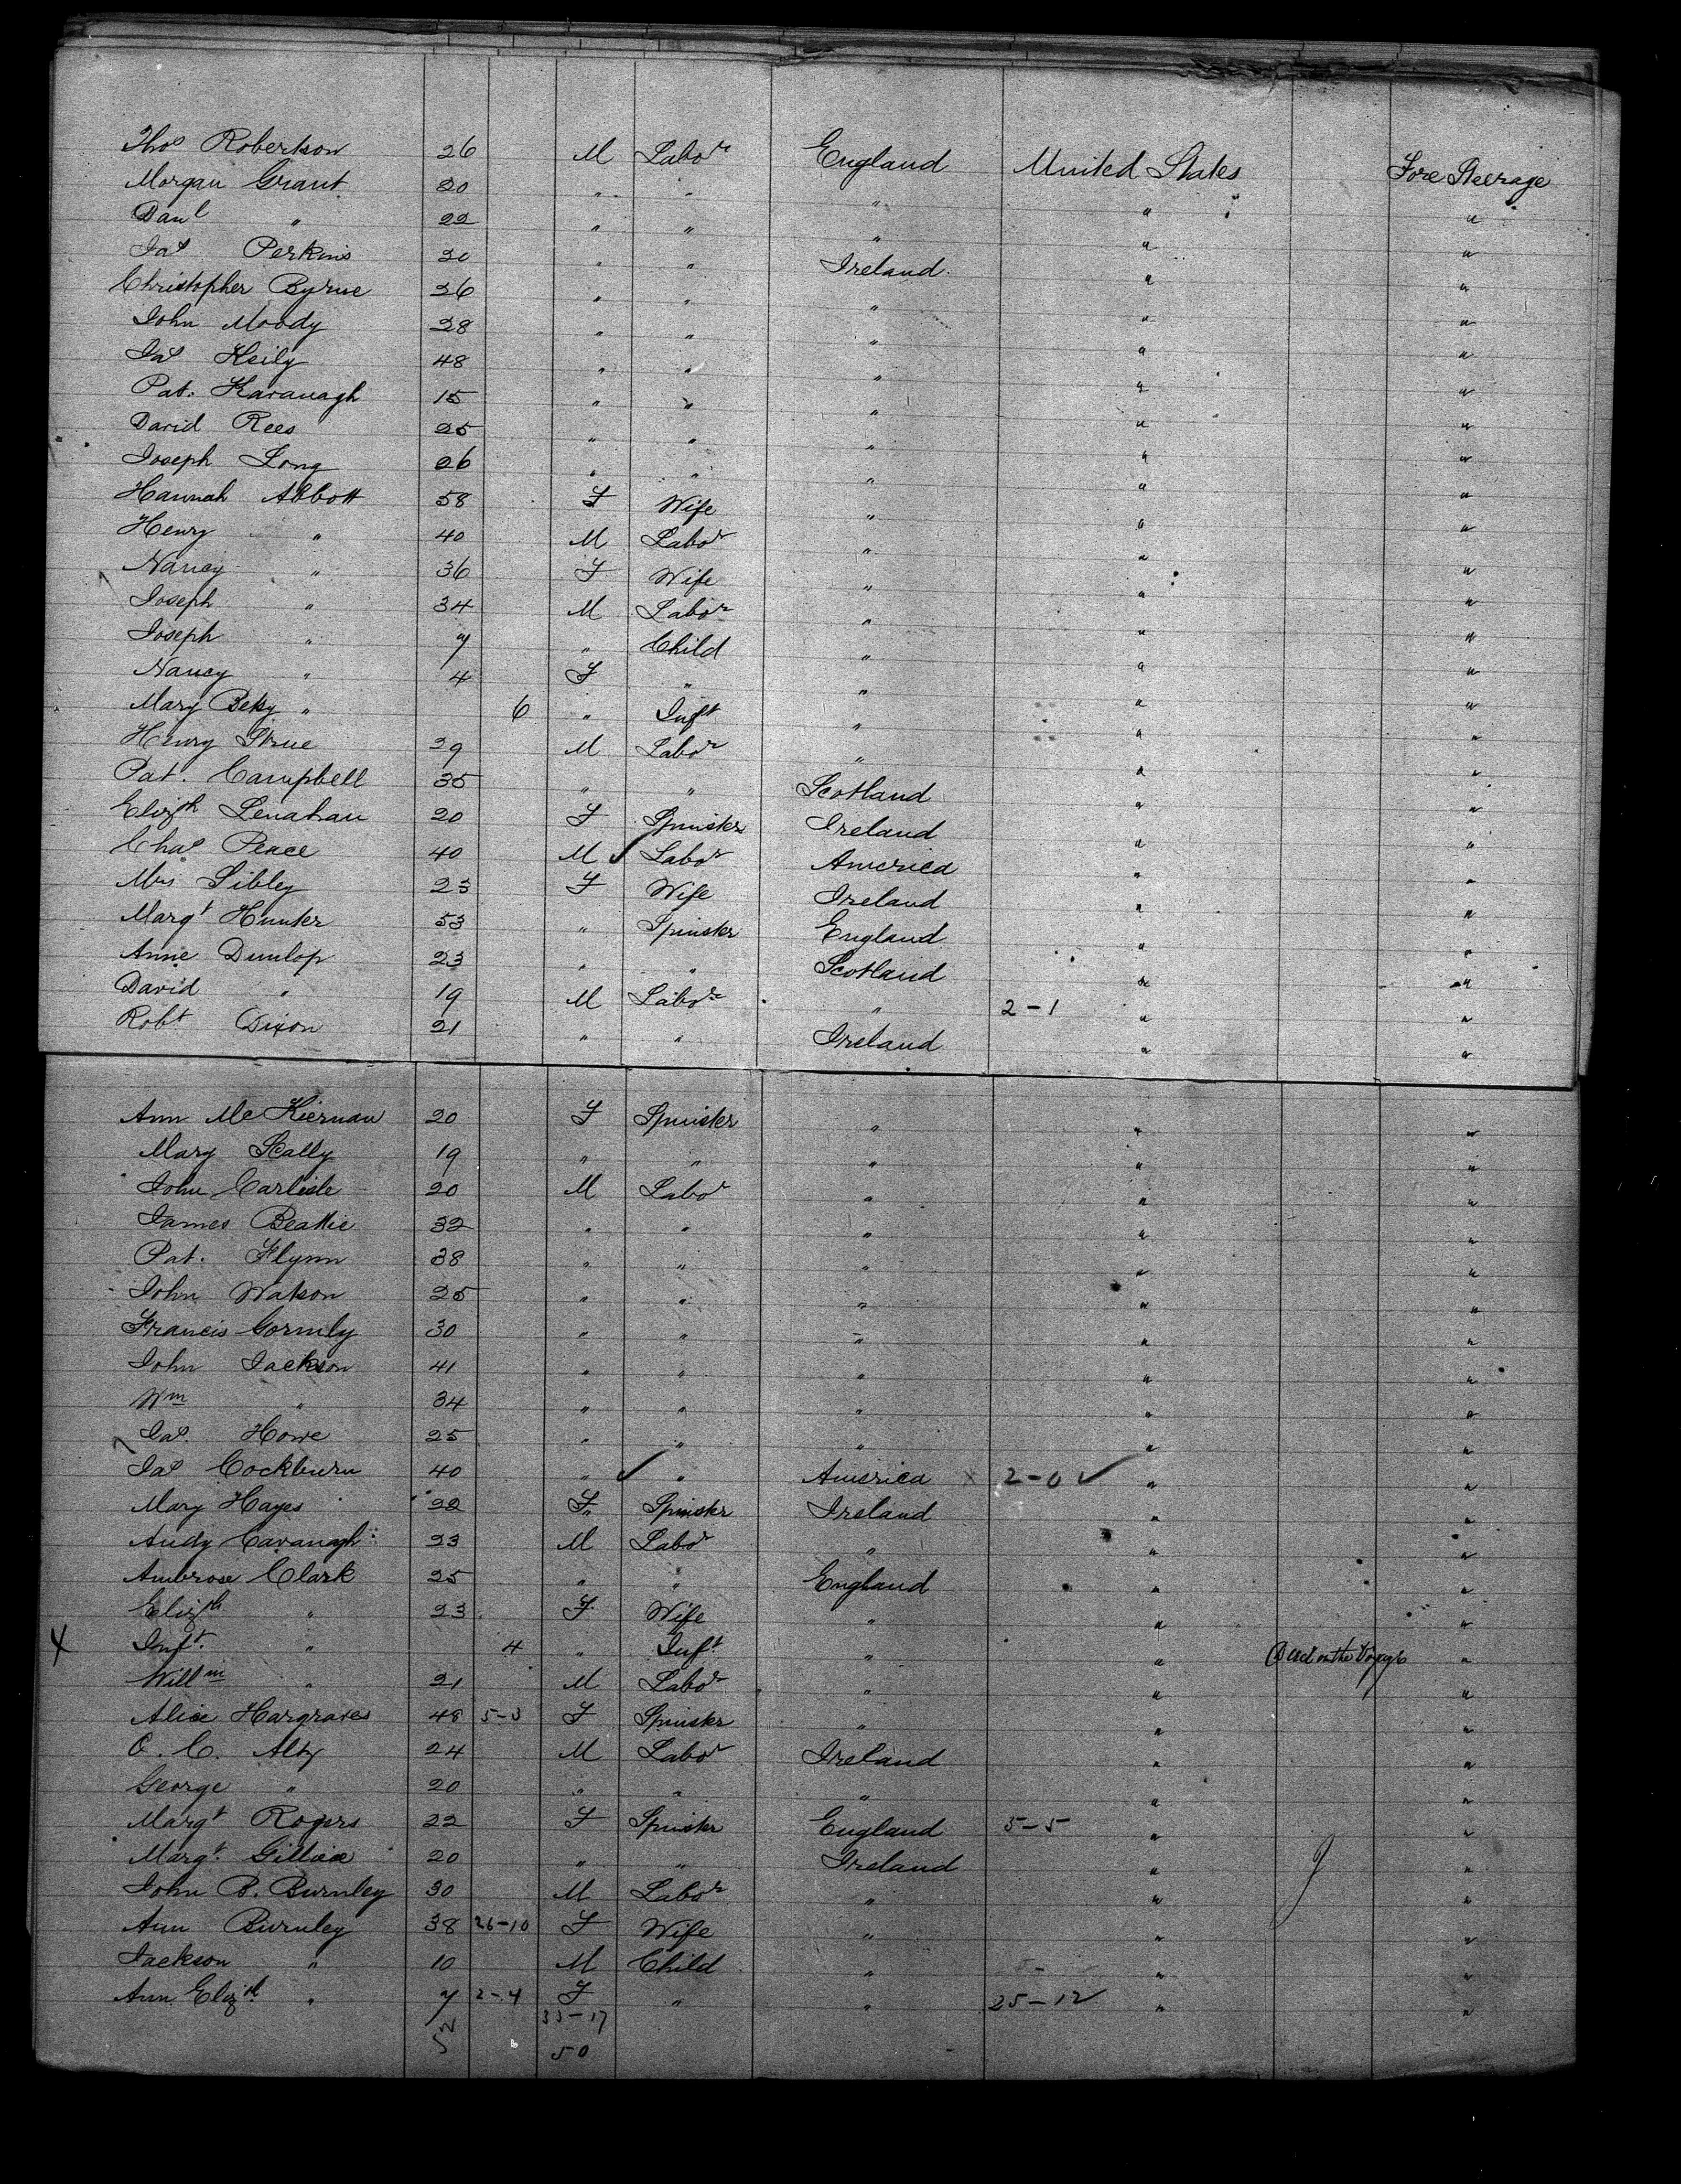 Thos Robertson 26 M Labor England United States Fore Steerage
Morgan Grant 20 " " " " "
Danl " 22 " " " " "
Jas Perkins 20 " " Ireland " "
Christopher Byrne 26 " " " " "
John Moody 28 " " " " "
Jas Keily 48 " " " " "
Pat. Kavanagh 15 " " " " "
David Rees 25 " " " " "
Joseph Long 26 " " " " "
Hannah Abbott 58 F Wife " " "
Henry " 40 M Labor " " "
Nancy " 36 F Wife " " "
Joseph " 34 M Labor " " "
Joseph " 7 " Child " " "
Nancy " 4 F " " " "
Mary Beky " 6 " Inft " " "
Henry True 29 M Labor " " "
Pat. Campbell 35 " " Scotland " "
Elizth Lenahan 20 F Spinster Ireland " "
Chas Peace 40 M ✓ Labor America " "
Mrs Sibley 23 F Wife Ireland " "
Margt Hunter 53 " Spinster England " "
Anne Dunlop 23 " " Scotland " "
David " 19 M Labor " 2-1 " "
Robt Dixon 21 " " Ireland " "
Ann McKiernan 20 F Spinster " " "
Mary Scally 19 " " " " "
John Carlisle 20 M Labor " " "
James Beattie 32 " " " " "
Pat. Flynn 38 " " " " "
John Watson 25 " " " " "
Francis Gormly 30 " " " " "
John Jackson 41 " " " " "
Wm " 34 " " " " "
Jas. Howe 25 " " " " "
Jas Cockburn 40 " ✓ " America x 2-0 ✓ " "
Mary Hayes 22 F Spinster Ireland " "
Andy Cavanagh 23 M Labor " " "
Ambrose Clark 25 " " England " "
Elizth " 23 F Wife " " "
X Inft. " 4 " Inft " " Died on the Voyage "
Willm " 21 M Labor " " "
Alice Hargraves 48 5-3 F Spinster " " "
O. C. Alty 24 M Labor Ireland " "
George " 20 " " " " "
Margt Rogers 22 F Spinster England 5-5 " "
Margt. 20 " " Ireland " "
John B. Burnley 30 M Labor " " "
Ann Burnley 38 26-10 F Wife " " "
Jackson " 10 M Child " " "
Ann Elizth " 7 2-4 F " " 25-12 " "
52 33-17
50